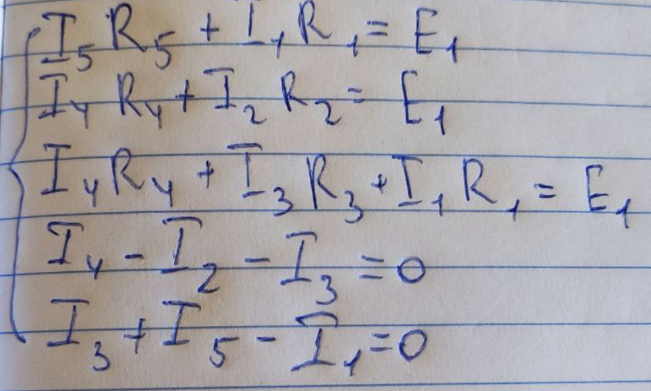 I₅R₅ + I₁R₁ = E₁
I₄R₄ + I₂R₂ = E₁
I₄R₄ + I₃R₃ + I₁R₁ = E₁
I₄ - I₂ - I₃ = 0
I₃ + I₅ - I₁ = 0